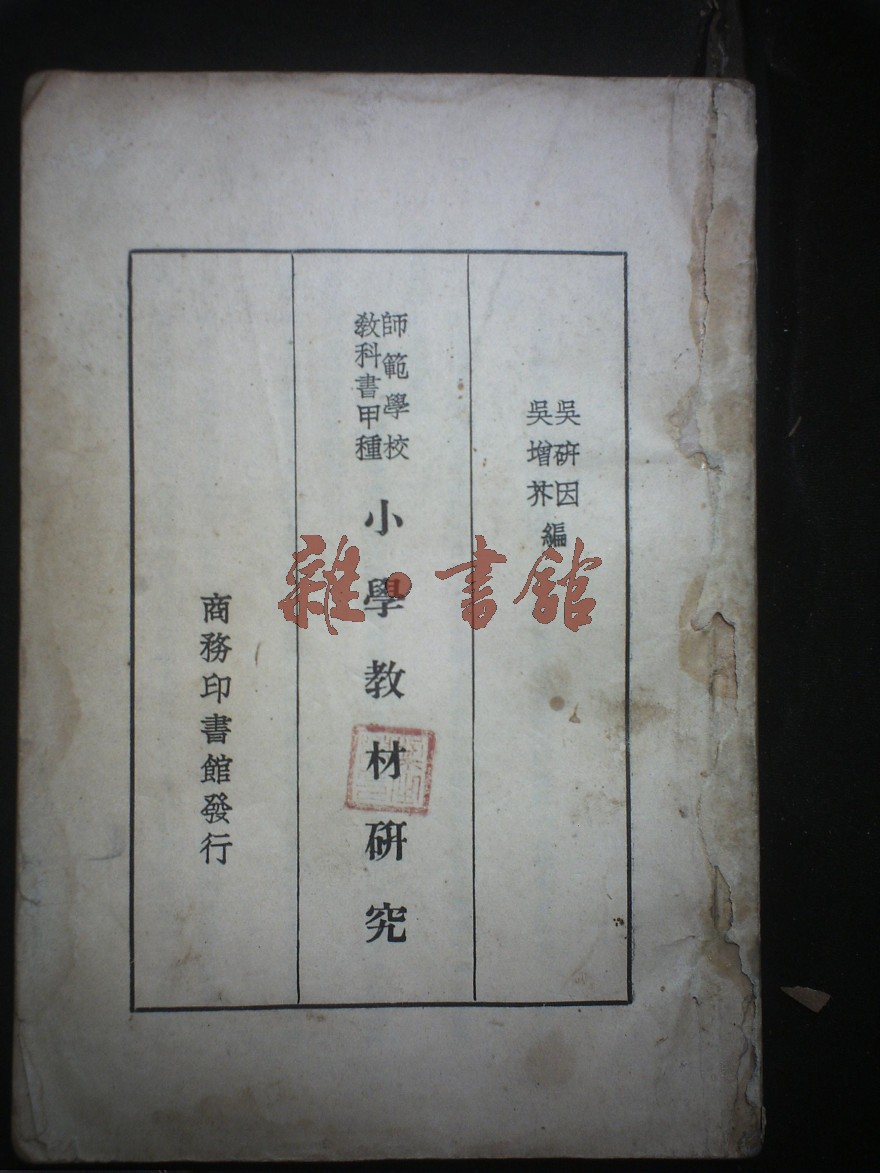 吳硏因
吳增芥
編
師範學校
敎科書甲種
小學教材硏究
商務印書館發行
雜·書館